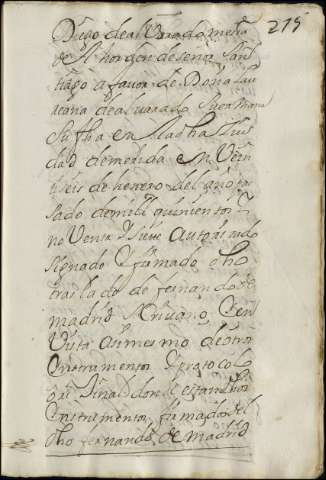 219
Diego de albarado mexia
del horden de señor san
tiago a favor de Doña
de albarado su ermana
su fha en la dha ciu
dad de merida en vein
te i seis de henero del año pa
sado de mill y quinientos y
noventa y siete autoriçado
signado y firmado el dho
traslado de fernando de
madrid escrivano y en
vista asimesmo de otro
ynstrumento y protocolo
original donde estan los
ynstrumentos firmados del
dho fernando de madrid